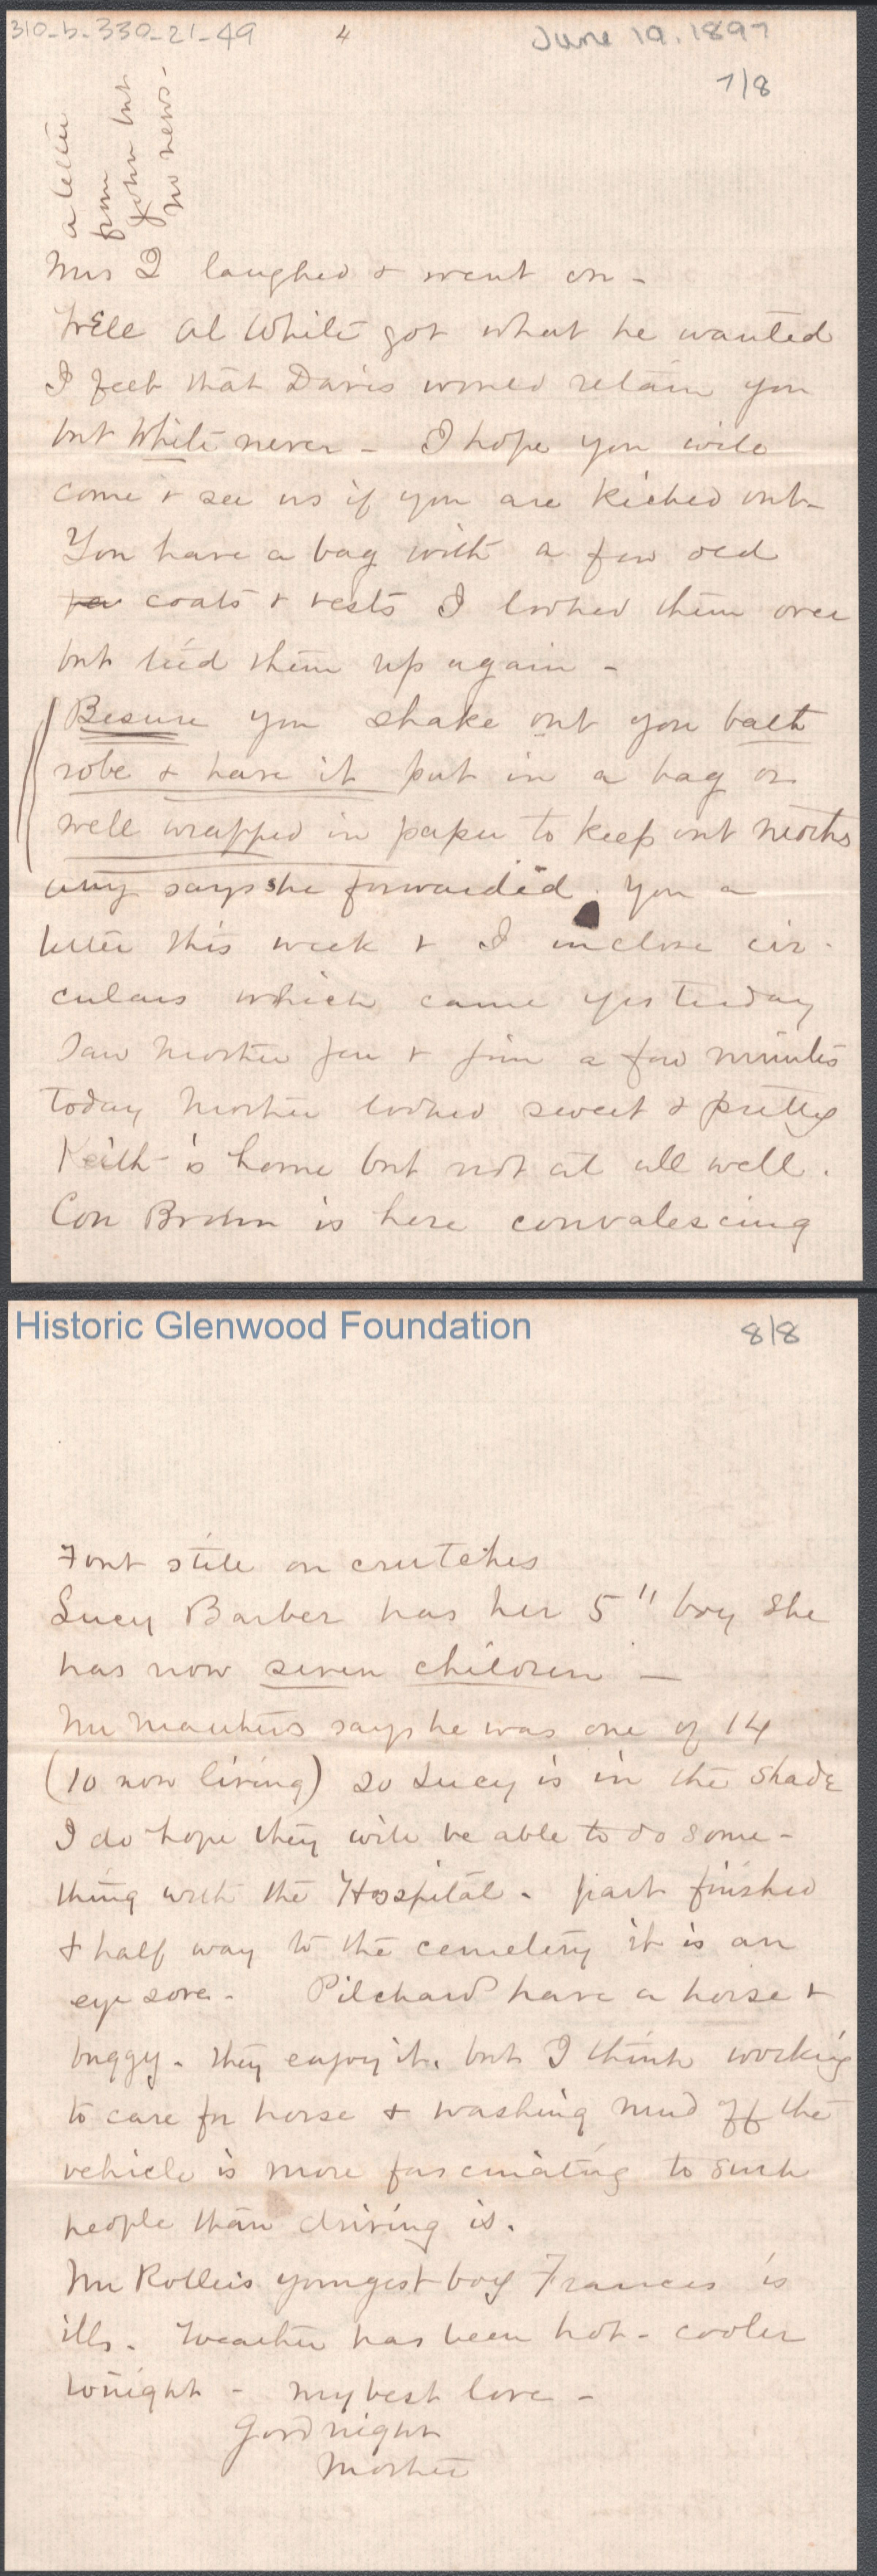 310-b-330-21-49
4
June 19, 1897
7/8
a letter
from
John but
no news-
Mrs I laughed & went on -
Well Al White got what he wanted
I feel that Davis would retain you
but White never - I hope you will
come & see us if you are kicked out-
You have a bag with a few old
coats & vests I looked them over
but tied them up again -
Besure you shake out you bath
robe & have it put in a bag or
well wrapped in paper to keep out moths
Amy says she forwarded you a
letter this week & I inclose cir-
culars which came yesterday
Saw Mother Jen & Jim a few minutes
today Mother looked sweet & pretty
Keith is home but not at all well.
Con Brown is here convalescing
Historic Glenwood Foundation
8/8
Foot still on crutches
Lucy Barber has her 5" boy she
has now seven children -
Mr says he was one of 14
(10 now living) so Lucy is in the shade
I do hope they will be able to do some-
thing with the Hospital - part finished
& half way to the cemetery it is an
eye sore - Pilchard have a horse &
buggy - they enjoy it. but I think working
to care for horse & washing mud off the
vehicle is more fascinating to such
people than driving is.
Mr youngest boy Frances is
ill. Weather has been hot - cooler
tonight - my best love -
Good night
Mother